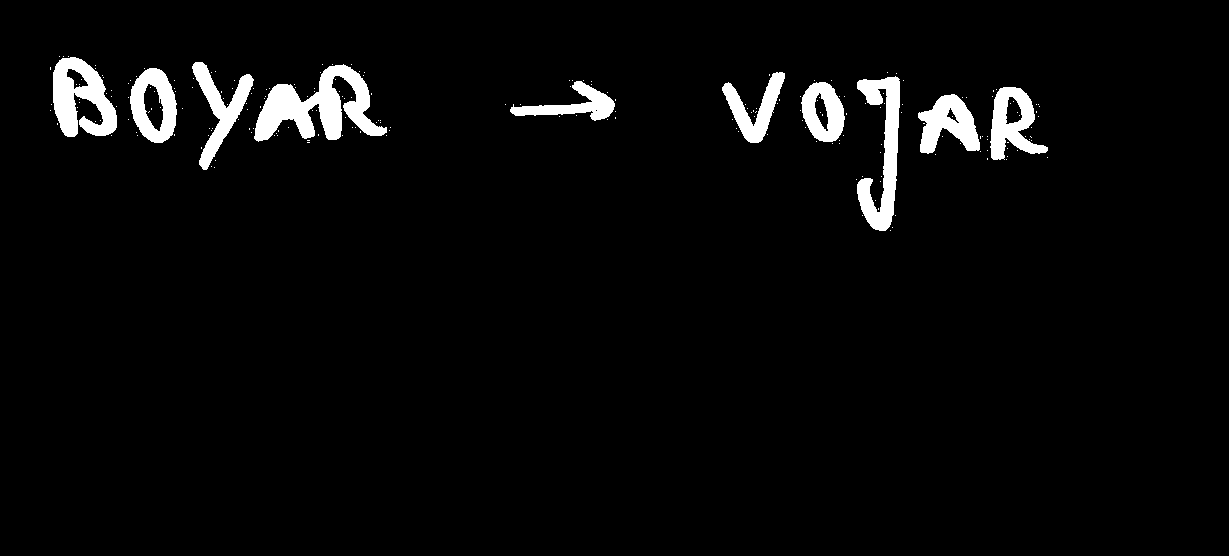 BOYAR → VOJAR